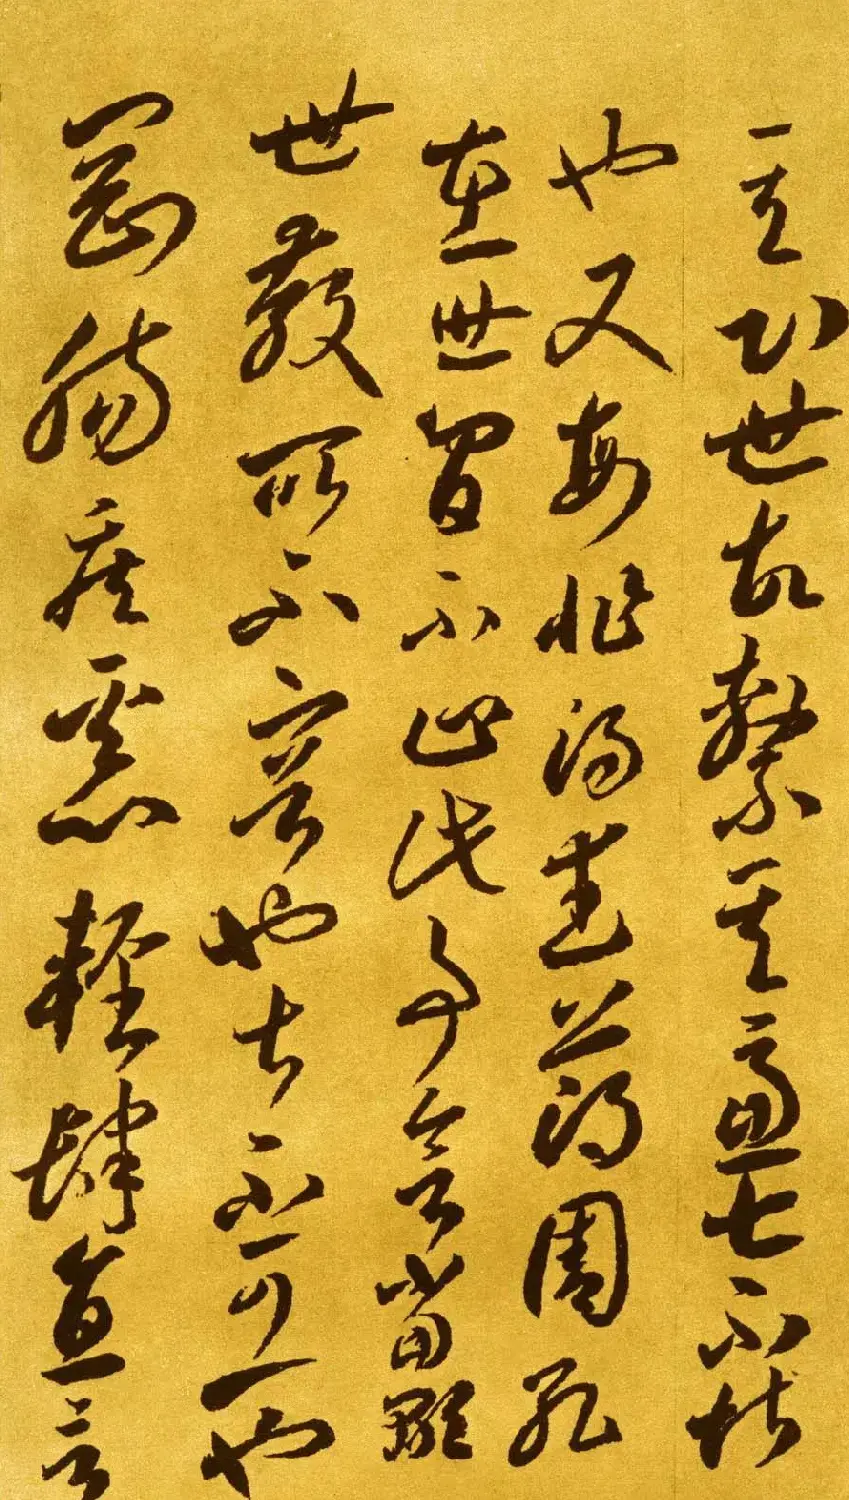 其心世故繁其慮七不堪
也又每非湯武薄周孔
在世間不止此事會當顯
世教所不容也不可一也
剛腸疾惡輕肆直言